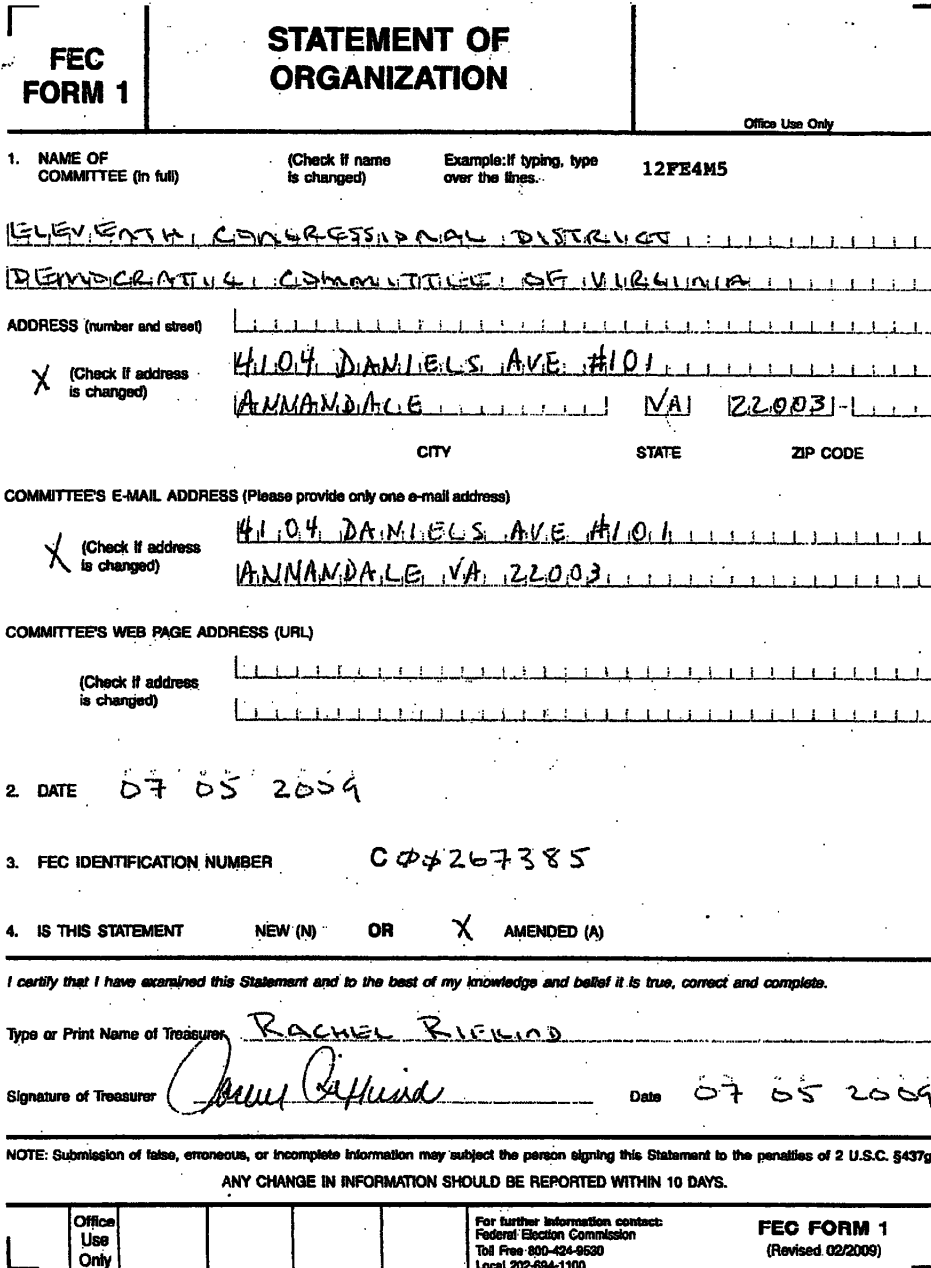 FEC
FORM 1
STATEMENT OF
ORGANIZATION
Office Use Only
1. NAME OF
COMMITTEE (in full)
(Check if name
is changed)
Example:If typing, type
over the lines.
12FE4M5
ELEVENTH CONGRESSIONAL DISTRICT
DEMOCRATIC COMMITTEE OF VIRGINIA
ADDRESS (number and street)
X (Check if address
is changed)
4104 DANIELS AVE #101
ANNANDALE VA 22003-
CITY STATE ZIP CODE
COMMITTEE'S E-MAIL ADDRESS (Please provide only one e-mail address)
X (Check if address
is changed)
4104 DANIELS AVE #101
ANNANDALE VA 22003
COMMITTEE'S WEB PAGE ADDRESS (URL)
(Check if address
is changed)
2. DATE 07 05 2009
3. FEC IDENTIFICATION NUMBER C00267385
4. IS THIS STATEMENT NEW (N) OR X AMENDED (A)
I certify that I have examined this Statement and to the best of my knowledge and belief it is true, correct and complete.
Type or Print Name of Treasurer RACHEL RIFKIND
Signature of Treasurer Rifkind Date 07 05 2009
NOTE: Submission of false, erroneous, or incomplete information may subject the person signing this Statement to the penalties of 2 U.S.C. §437g
ANY CHANGE IN INFORMATION SHOULD BE REPORTED WITHIN 10 DAYS.
Office
Use
Only
For further information contact:
Federal Election Commission
Toll Free 800-424-9530
Local 202-694-1100
FEC FORM 1
(Revised 02/2009)